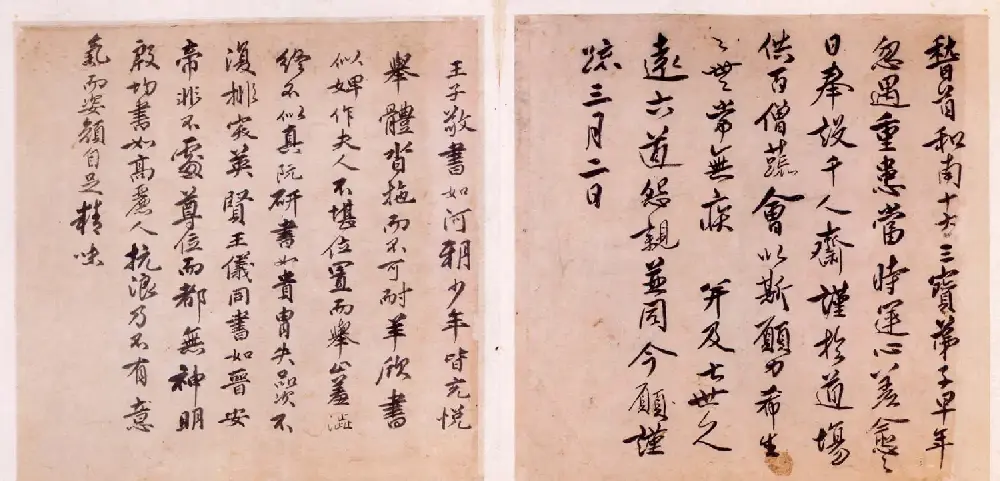 稽首和南十方三寶弟子早年
忽遇重患當時運心差愈之
日奉設千人齋謹於道場
供百僧蔬會以斯願力希生
〻世〻常無疾 并及七世久
遠六道怨親並同今願謹
疏三月二日
王子敬書如河朔少年皆充悅
舉體沓拖而不可耐羊欣書
似婢作夫人不堪位置而舉止羞澁
終不似真阮研書如貴胄失品次不
復排突英賢王儀同書如晉安
帝非不處尊位而都無神明
殷均書如高麗人抗浪乃不有意
氣而姿顏自足精味